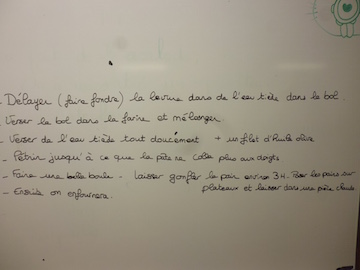 - Délayer (faire fondre) la levure dans de l'eau tiède dans le bol.
- Verser le bol dans la farine et mélanger.
- Verser de l'eau tiède tout doucement + un filet d'huile olive
- Pétrir jusqu'à ce que la pâte ne colle plus aux doigts
- Faire une boule - Laisser gonfler le pain environ 3H. Poser les pains sur
plateaux et laisser dans une pièce chaude
- Ensuite on enfournera.